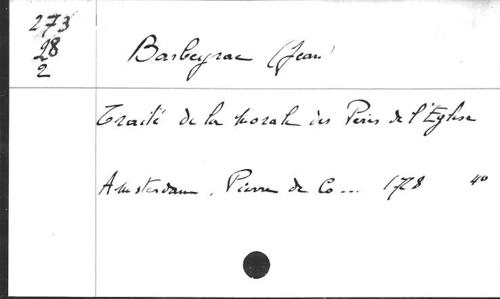 273
28
2
Barbeyrac (Jean)
Traité de la Morale des Pères de l'Eglise
Amsterdam, Pierre de Co... 1728 4°